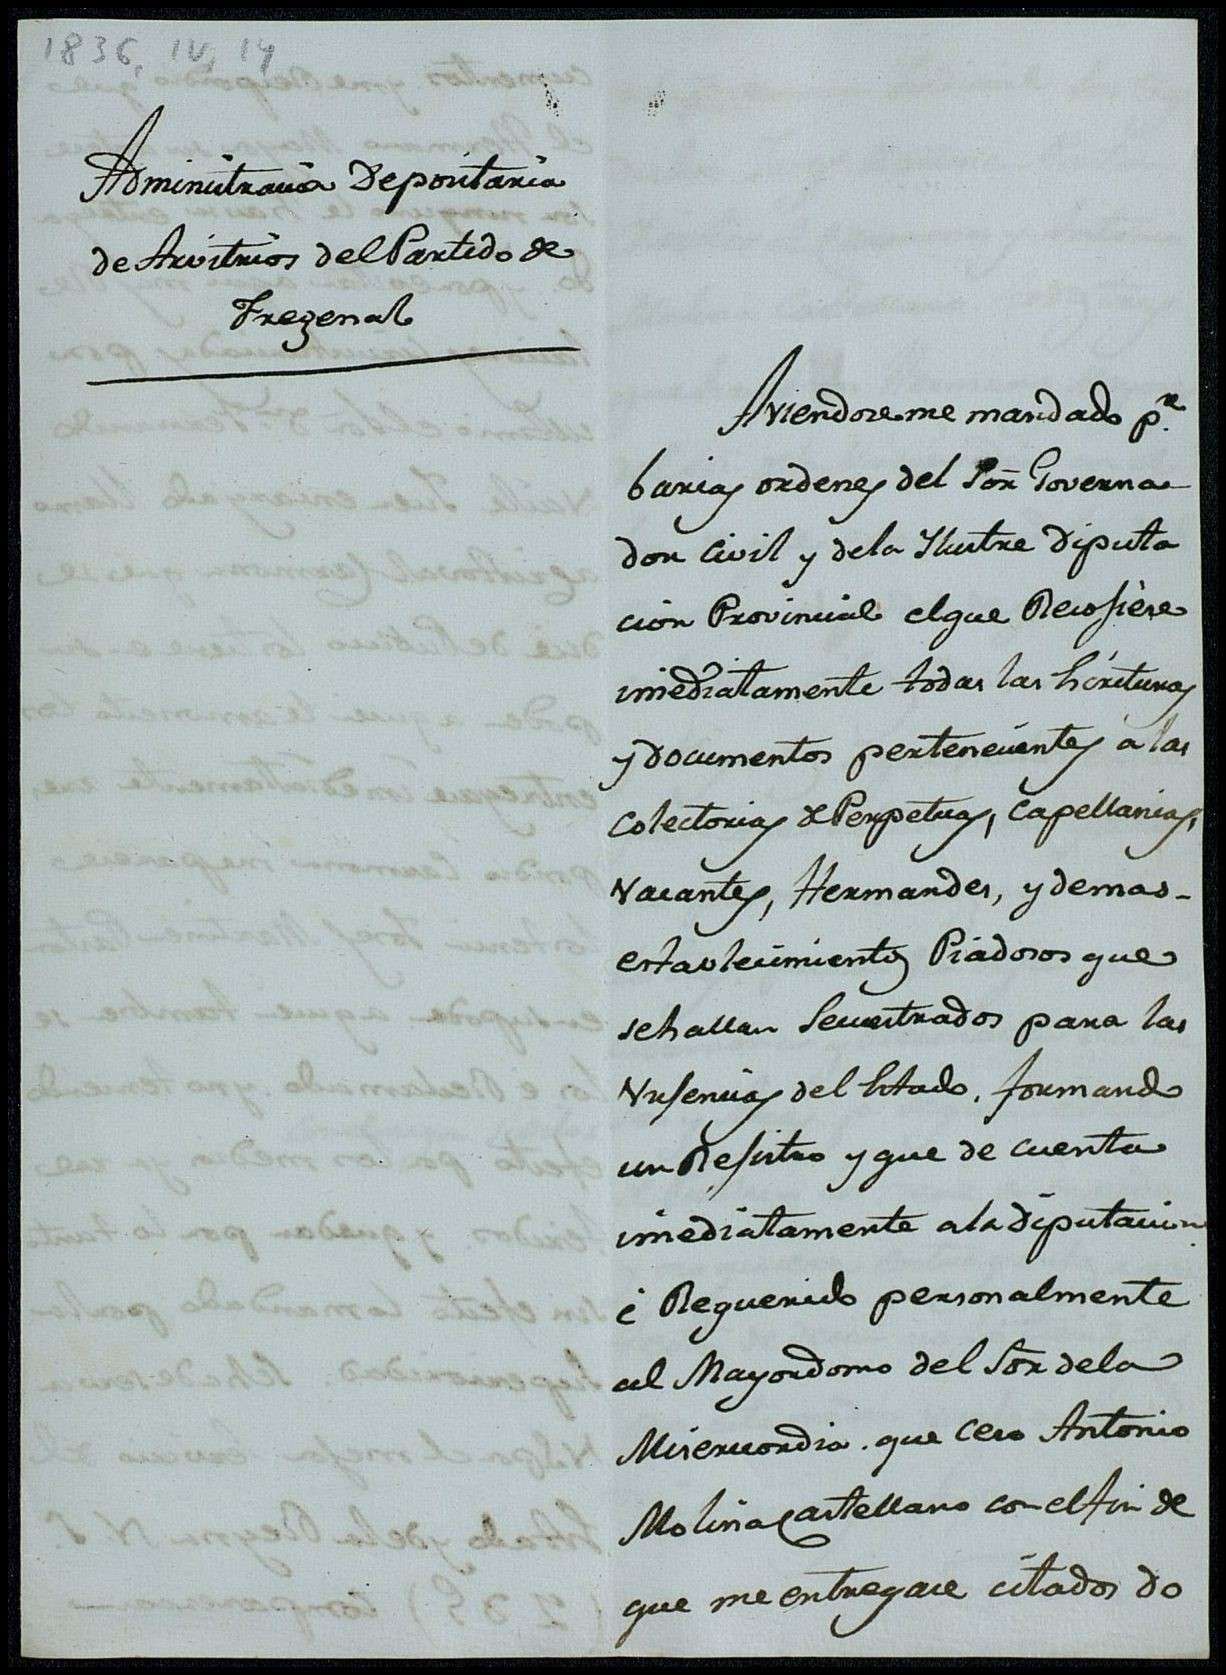 1836, IV, 14
Administracion Depositaria
de Arvitrios del Partido de
Fregenal
Aviendoseme mandado p.r
barias ordenes del Sor̃ Governa-
dor Civil y dela Ylustre Diputa
cion Provincial el que Recogiese
imediatamente todas las Escrituras
y documentos pertenecientes a las
Colectorias de Perpetuas, Capellanias,
Vacantes, Hermandes, y demas-
establecimientos Piadosos que
se hallan Secuestrados para las
Vrgencias del Estado, formando
un Registro y que de cuenta
imediatamente a la Diputacion
é Requerido personalmente
al Mayordomo del Sor dela
Misericordia que ceso Antonio
Molina Castellano con el fin de
que me entregase citados do